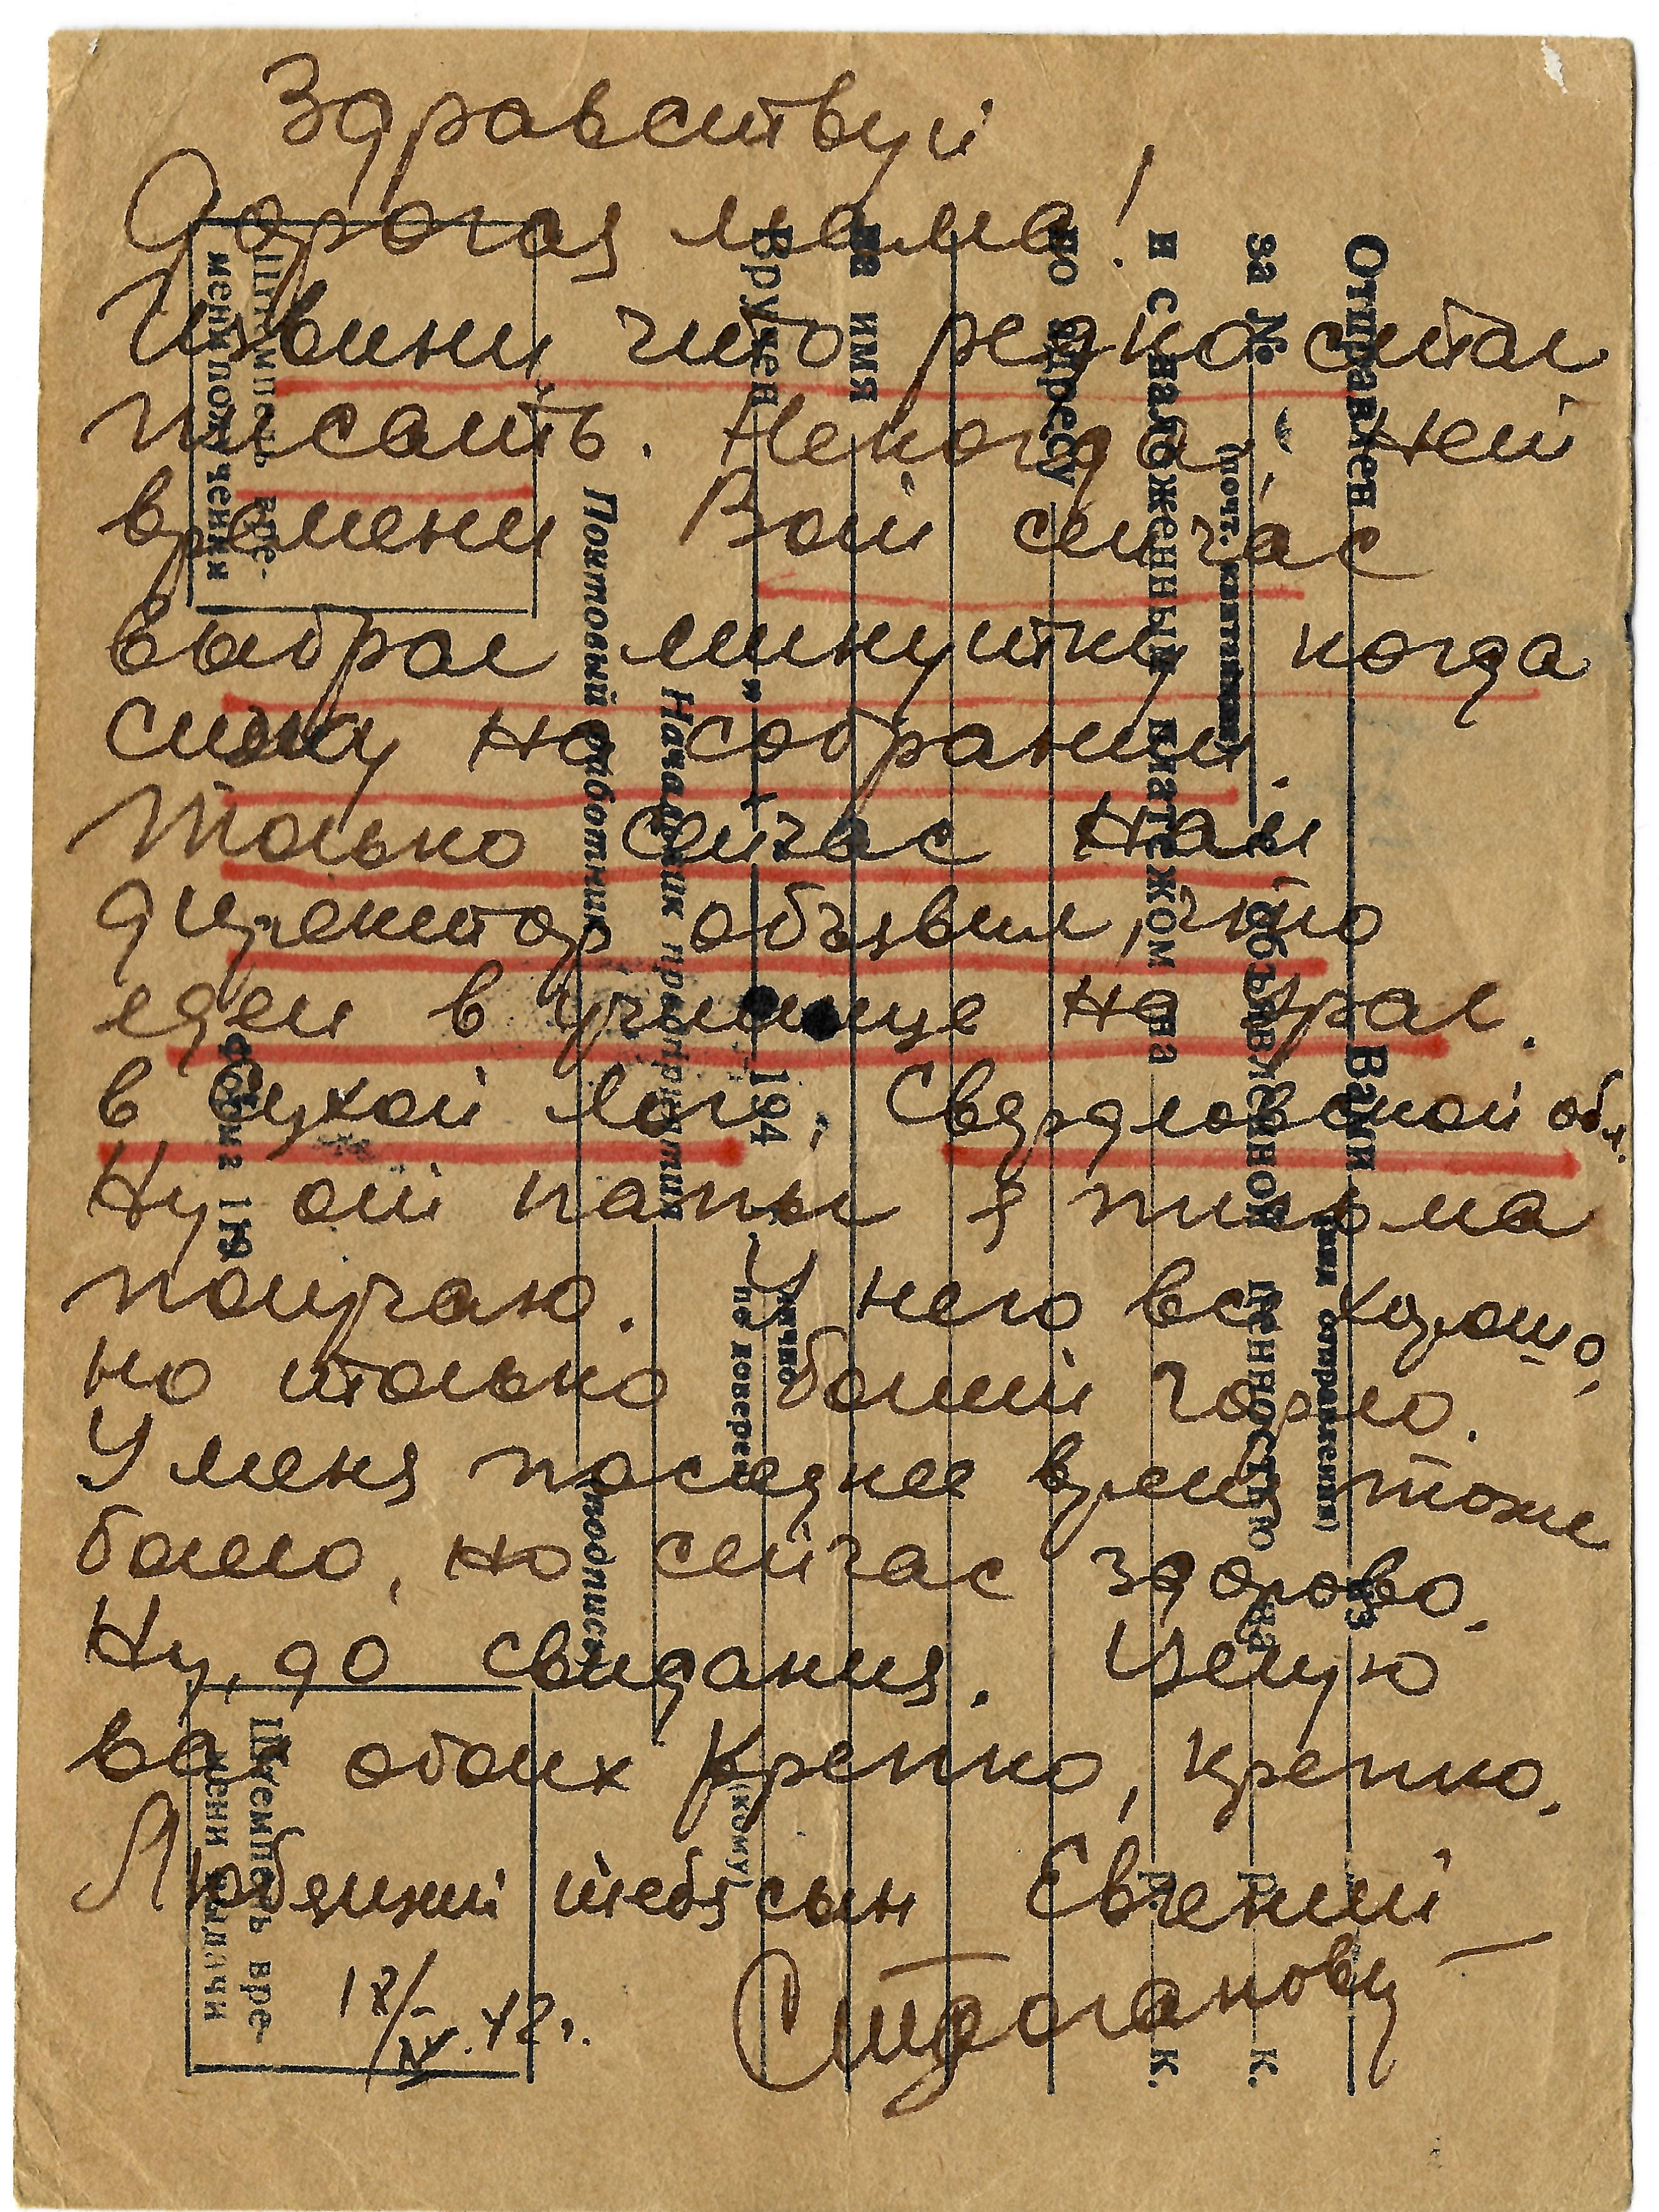 Здравствуй
Дорогая мама!
Извини что редко стал
писать. Некогда, нет
времени Вот сейчас
выбрал минутку когда
сижу на собрании.
Только сейчас нам
директор объявил, что
едем в училище на Урал.
в Сухой Лог, Свердловской обл.
Ну от папы я письма
получаю. У него все хорошо,
но только болит горло.
У меня последнее время тоже
болело, но сейчас здорово.
Ну, до свидания. Целую
вас обоих крепко, крепко.
Любящий тебя сын Евгений
Строганов
18/IV.42г.
Отправлен Вами из
(почт. квитанции) (вид отправления)
за № с объявленной ценностью на р. к.
и с наложенным платежом на р. к.
по адресу
на имя
Вручен „ “ 194 г. лично
по доверен.
(кому)
Начальник предприятия
Почтовый работник (подпись)
Штемпель вре-
мени получения
Штемпель вре-
мени выдачи